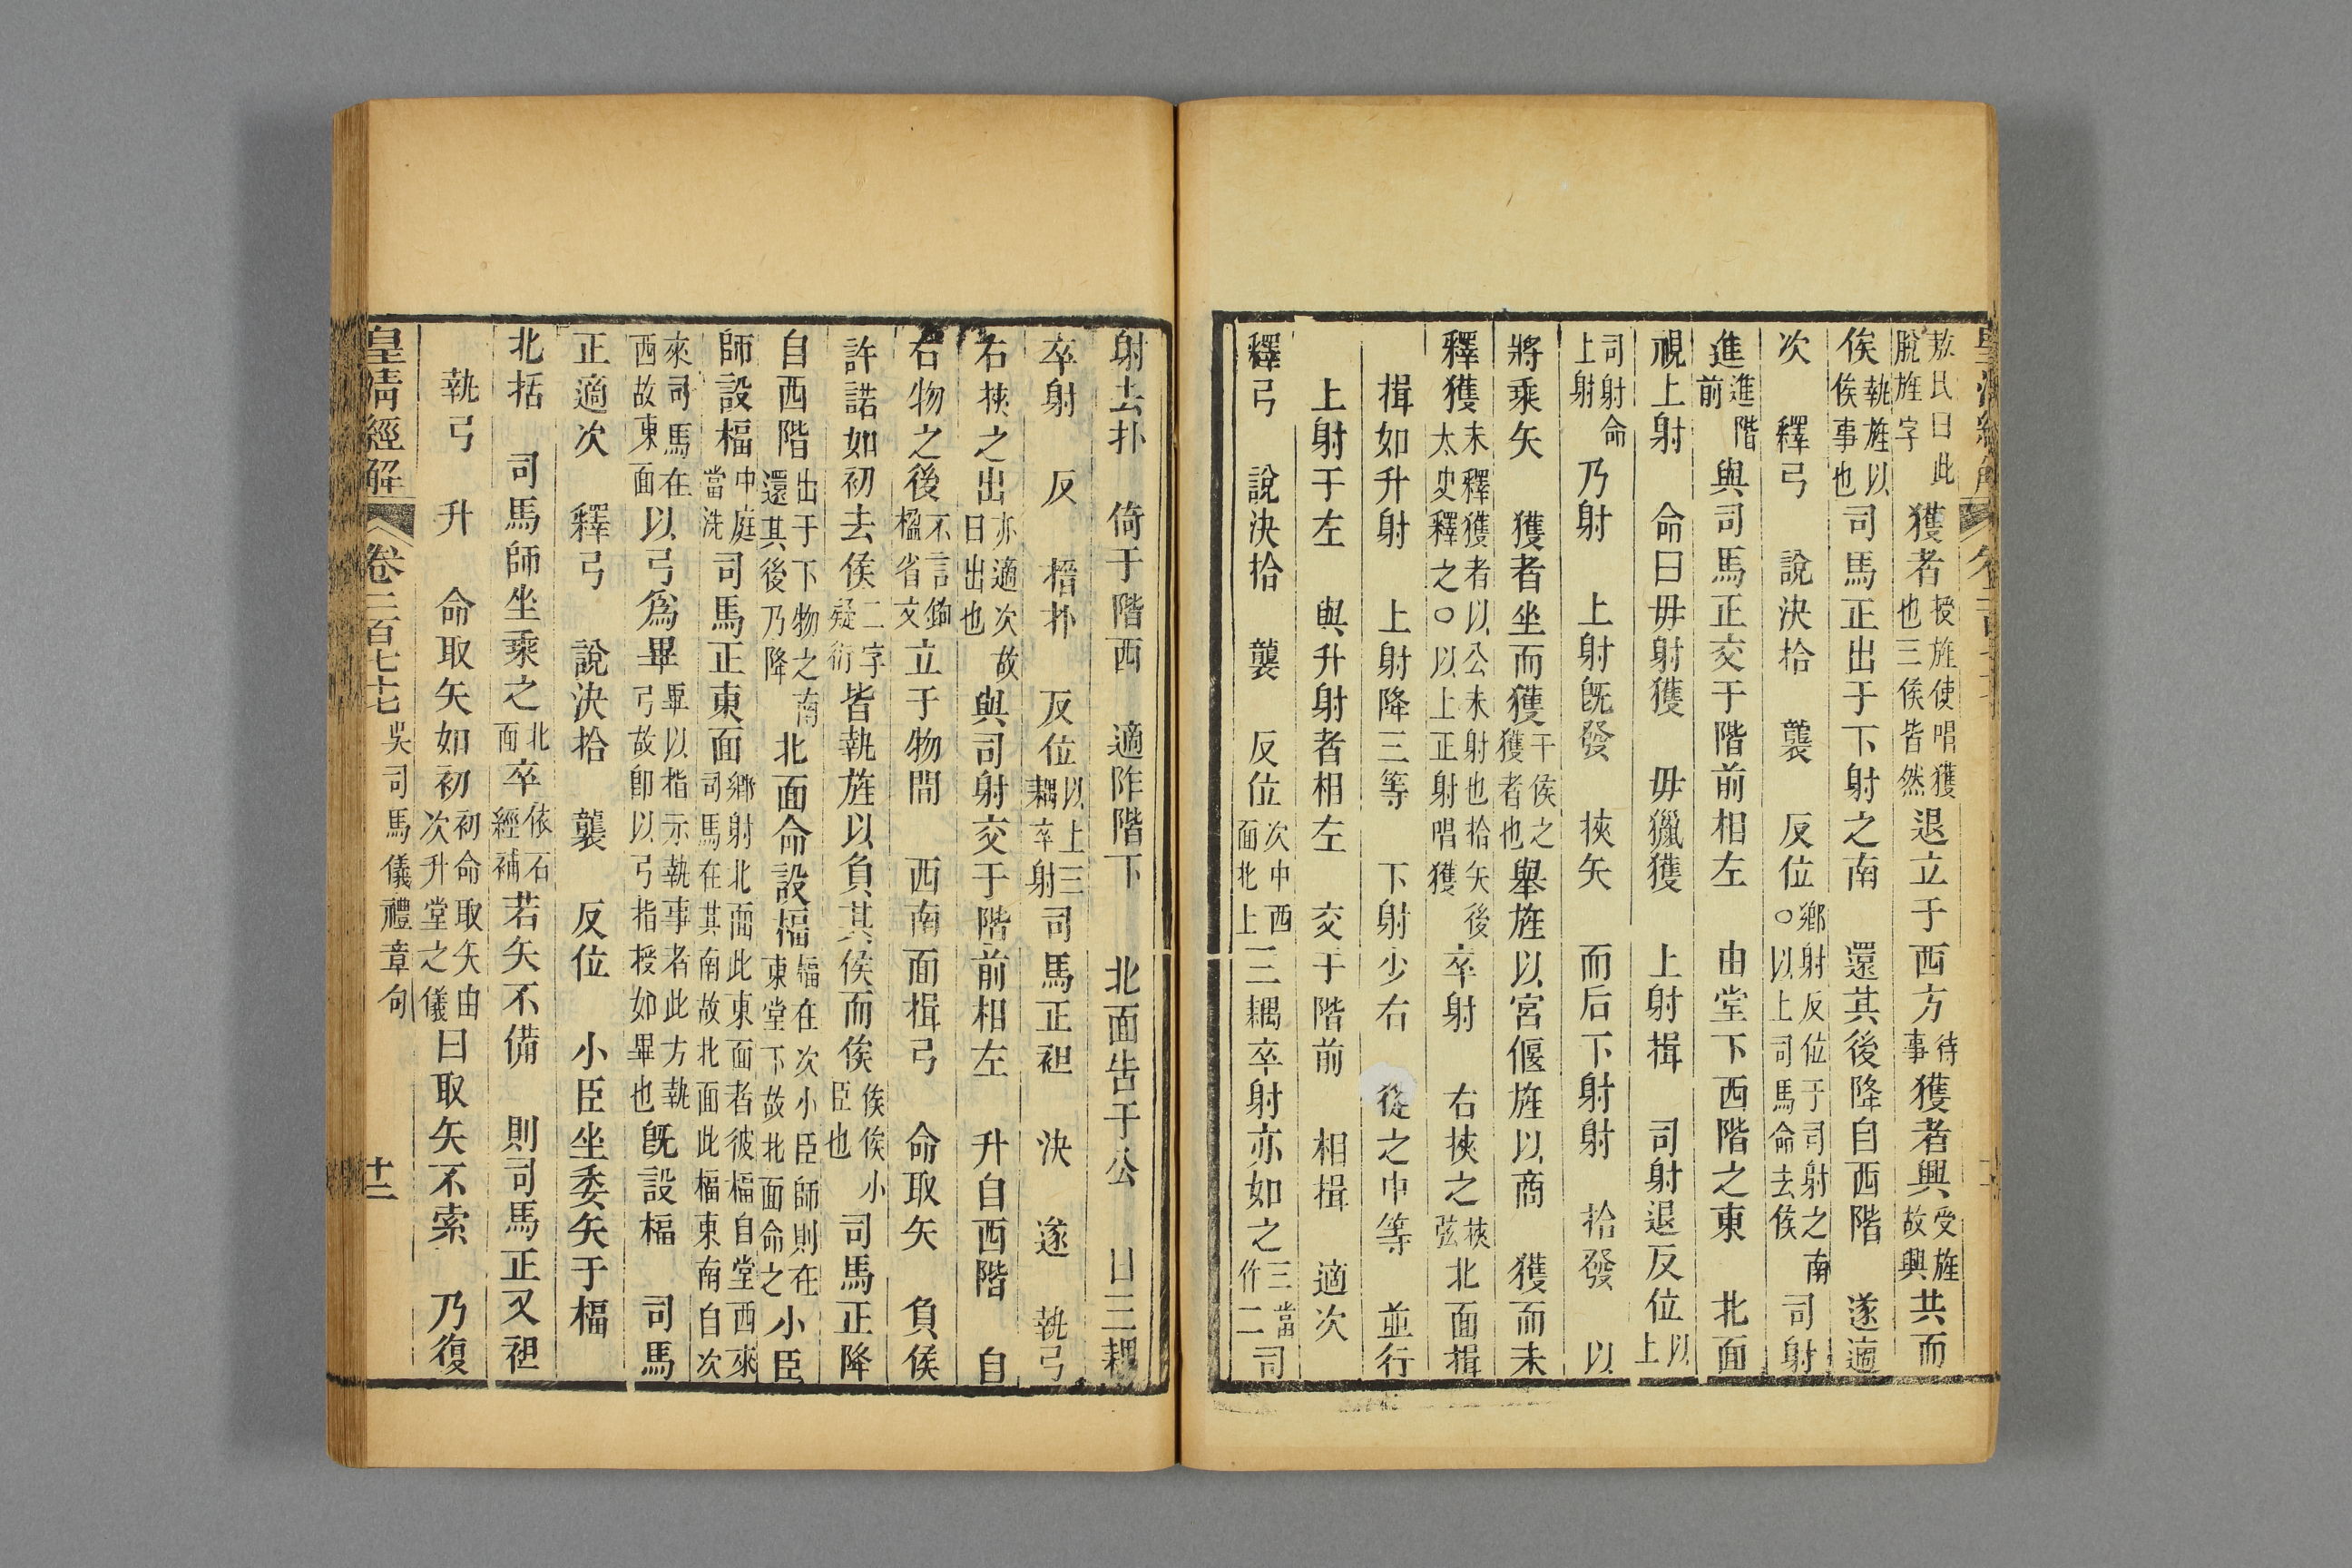 敖氏曰此脫旌字獲者授旌使唱獲也三侯皆然退立于西方待事獲者興受旌故興共而
俟執旌以俟事也司馬正出于下射之南 還其後降自西階 遂適
次 釋弓 說決拾 襲 反位鄉射反位于司射之南○以上司馬命去侯司射
進進階前與司馬正交于階前相左 由堂下西階之東 北面
視上射 命曰毋射獲 毋獵獲 上射揖 司射退反位以上
司射命上射乃射 上射旣發 挾矢 而后下射射 拾發 以
將乘矢 獲者坐而獲干侯之獲者也舉旌以宮偃旌以商 獲而未
釋獲未釋獲者以公未射也拾矢後太史釋之○以上正射唱獲卒射 右挾之挾弦北面揖
揖如升射 上射降三等 下射少右 從之中等 並行
上射于左 與升射者相左 交于階前 相揖 適次
釋弓 說決拾 襲 反位次中西面北上三耦卒射亦如之三當作二司
射去扑 倚于階西 適阼階下 北面告于公 曰三耦
卒射 反 搢扑 反位以上三耦卒射司馬正袒 決 遂 執弓
右挾之出亦適次故曰出也與司射交于階前相左 升自西階 自
右物之後不言鉤楹省文立于物間 西南面揖弓 命取矢 負侯
許諾如初去侯二字疑衍皆執旌以負其侯而俟俟俟小臣也司馬正降
自西階出于下物之南還其後乃降北面命設楅楅在次小臣師則在東堂下故北面命之小臣
師設楅中庭當洗司馬正東面鄉射北面此東面者彼楅自堂西來司馬在其南故北面此楅東南自次
來司馬在西故東面以弓爲畢畢以指示執事者此方執弓故卽以弓指授如畢也旣設楅 司馬
正適次 釋弓 說決拾 襲 反位 小臣坐委矢于楅
北括 司馬師坐乘之北面卒依石經補若矢不備 則司馬正又袒
執弓 升 命取矢如初初命取矢由次升堂之儀曰取矢不索 乃復
皇淸經解 卷二百七十七 吳司馬儀禮章句 十二